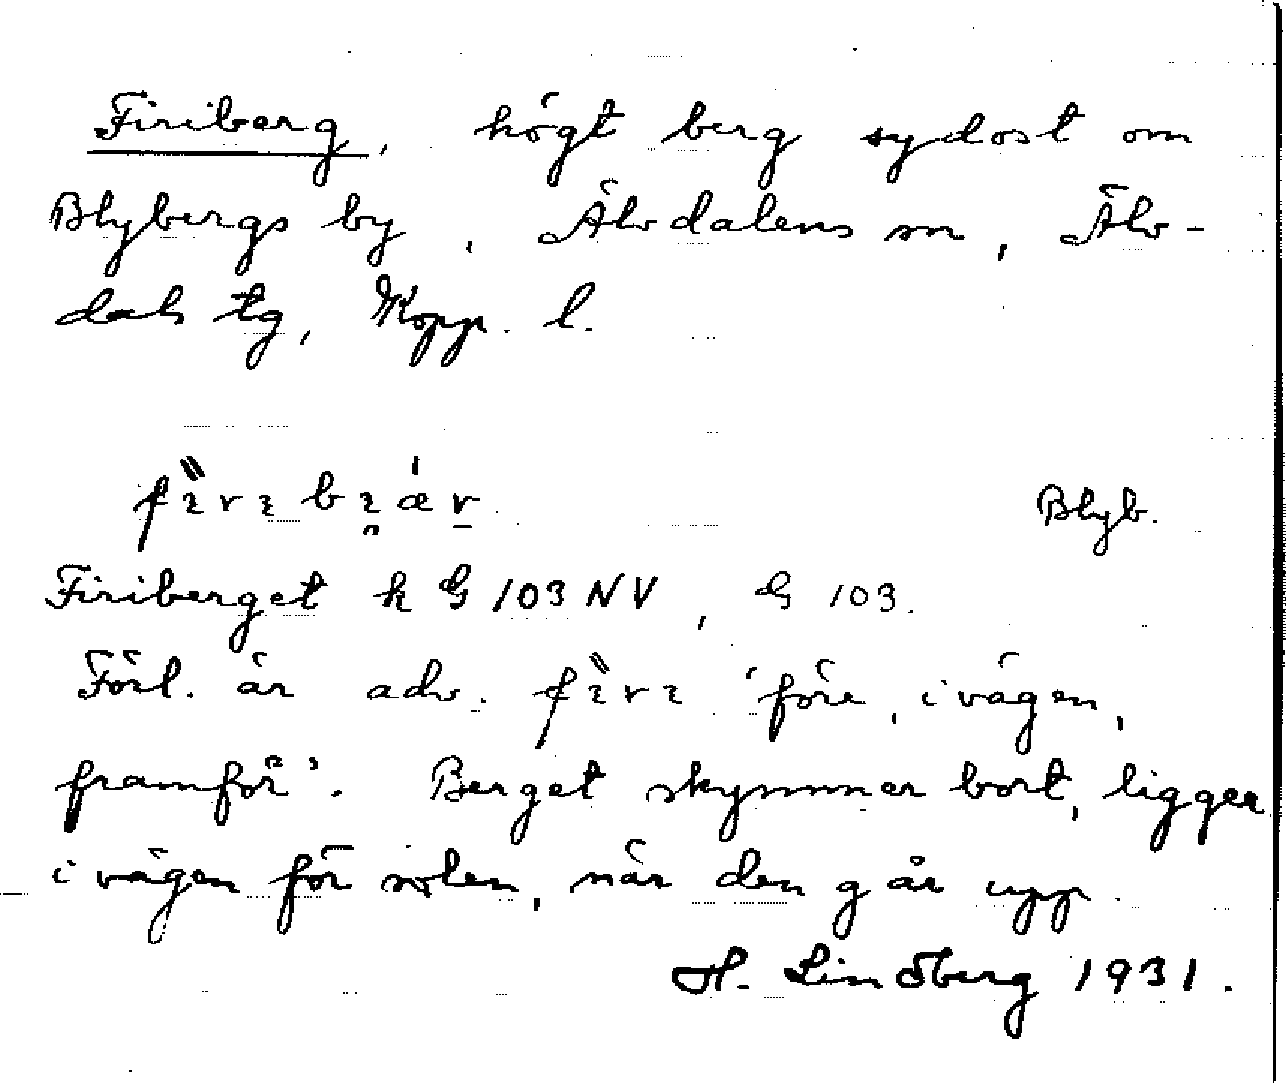 Firiberg, högt berg sydost om
Blybergs by, Älvdalens sn, Älv-
dals tg, Kopp. l.
Blyb.
Firiberget k G 103 NV, G 103.
Förl. är adv. 'före, i vägen,
framför'. Berget skymmer bort, ligger
i vägen för solen, när den går upp.
H. Lindberg 1931.